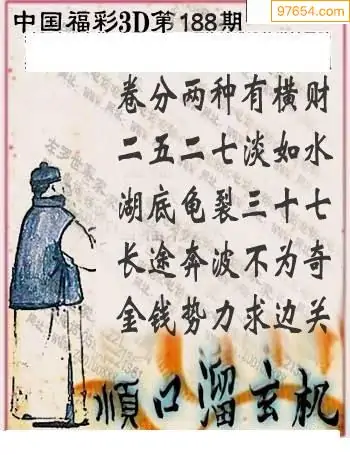 97654.com
中国福彩3D第188期
卷分两种有横财
二五二七淡如水
湖底龟裂三十七
长途奔波不为奇
金钱势力求边关
順口溜玄机